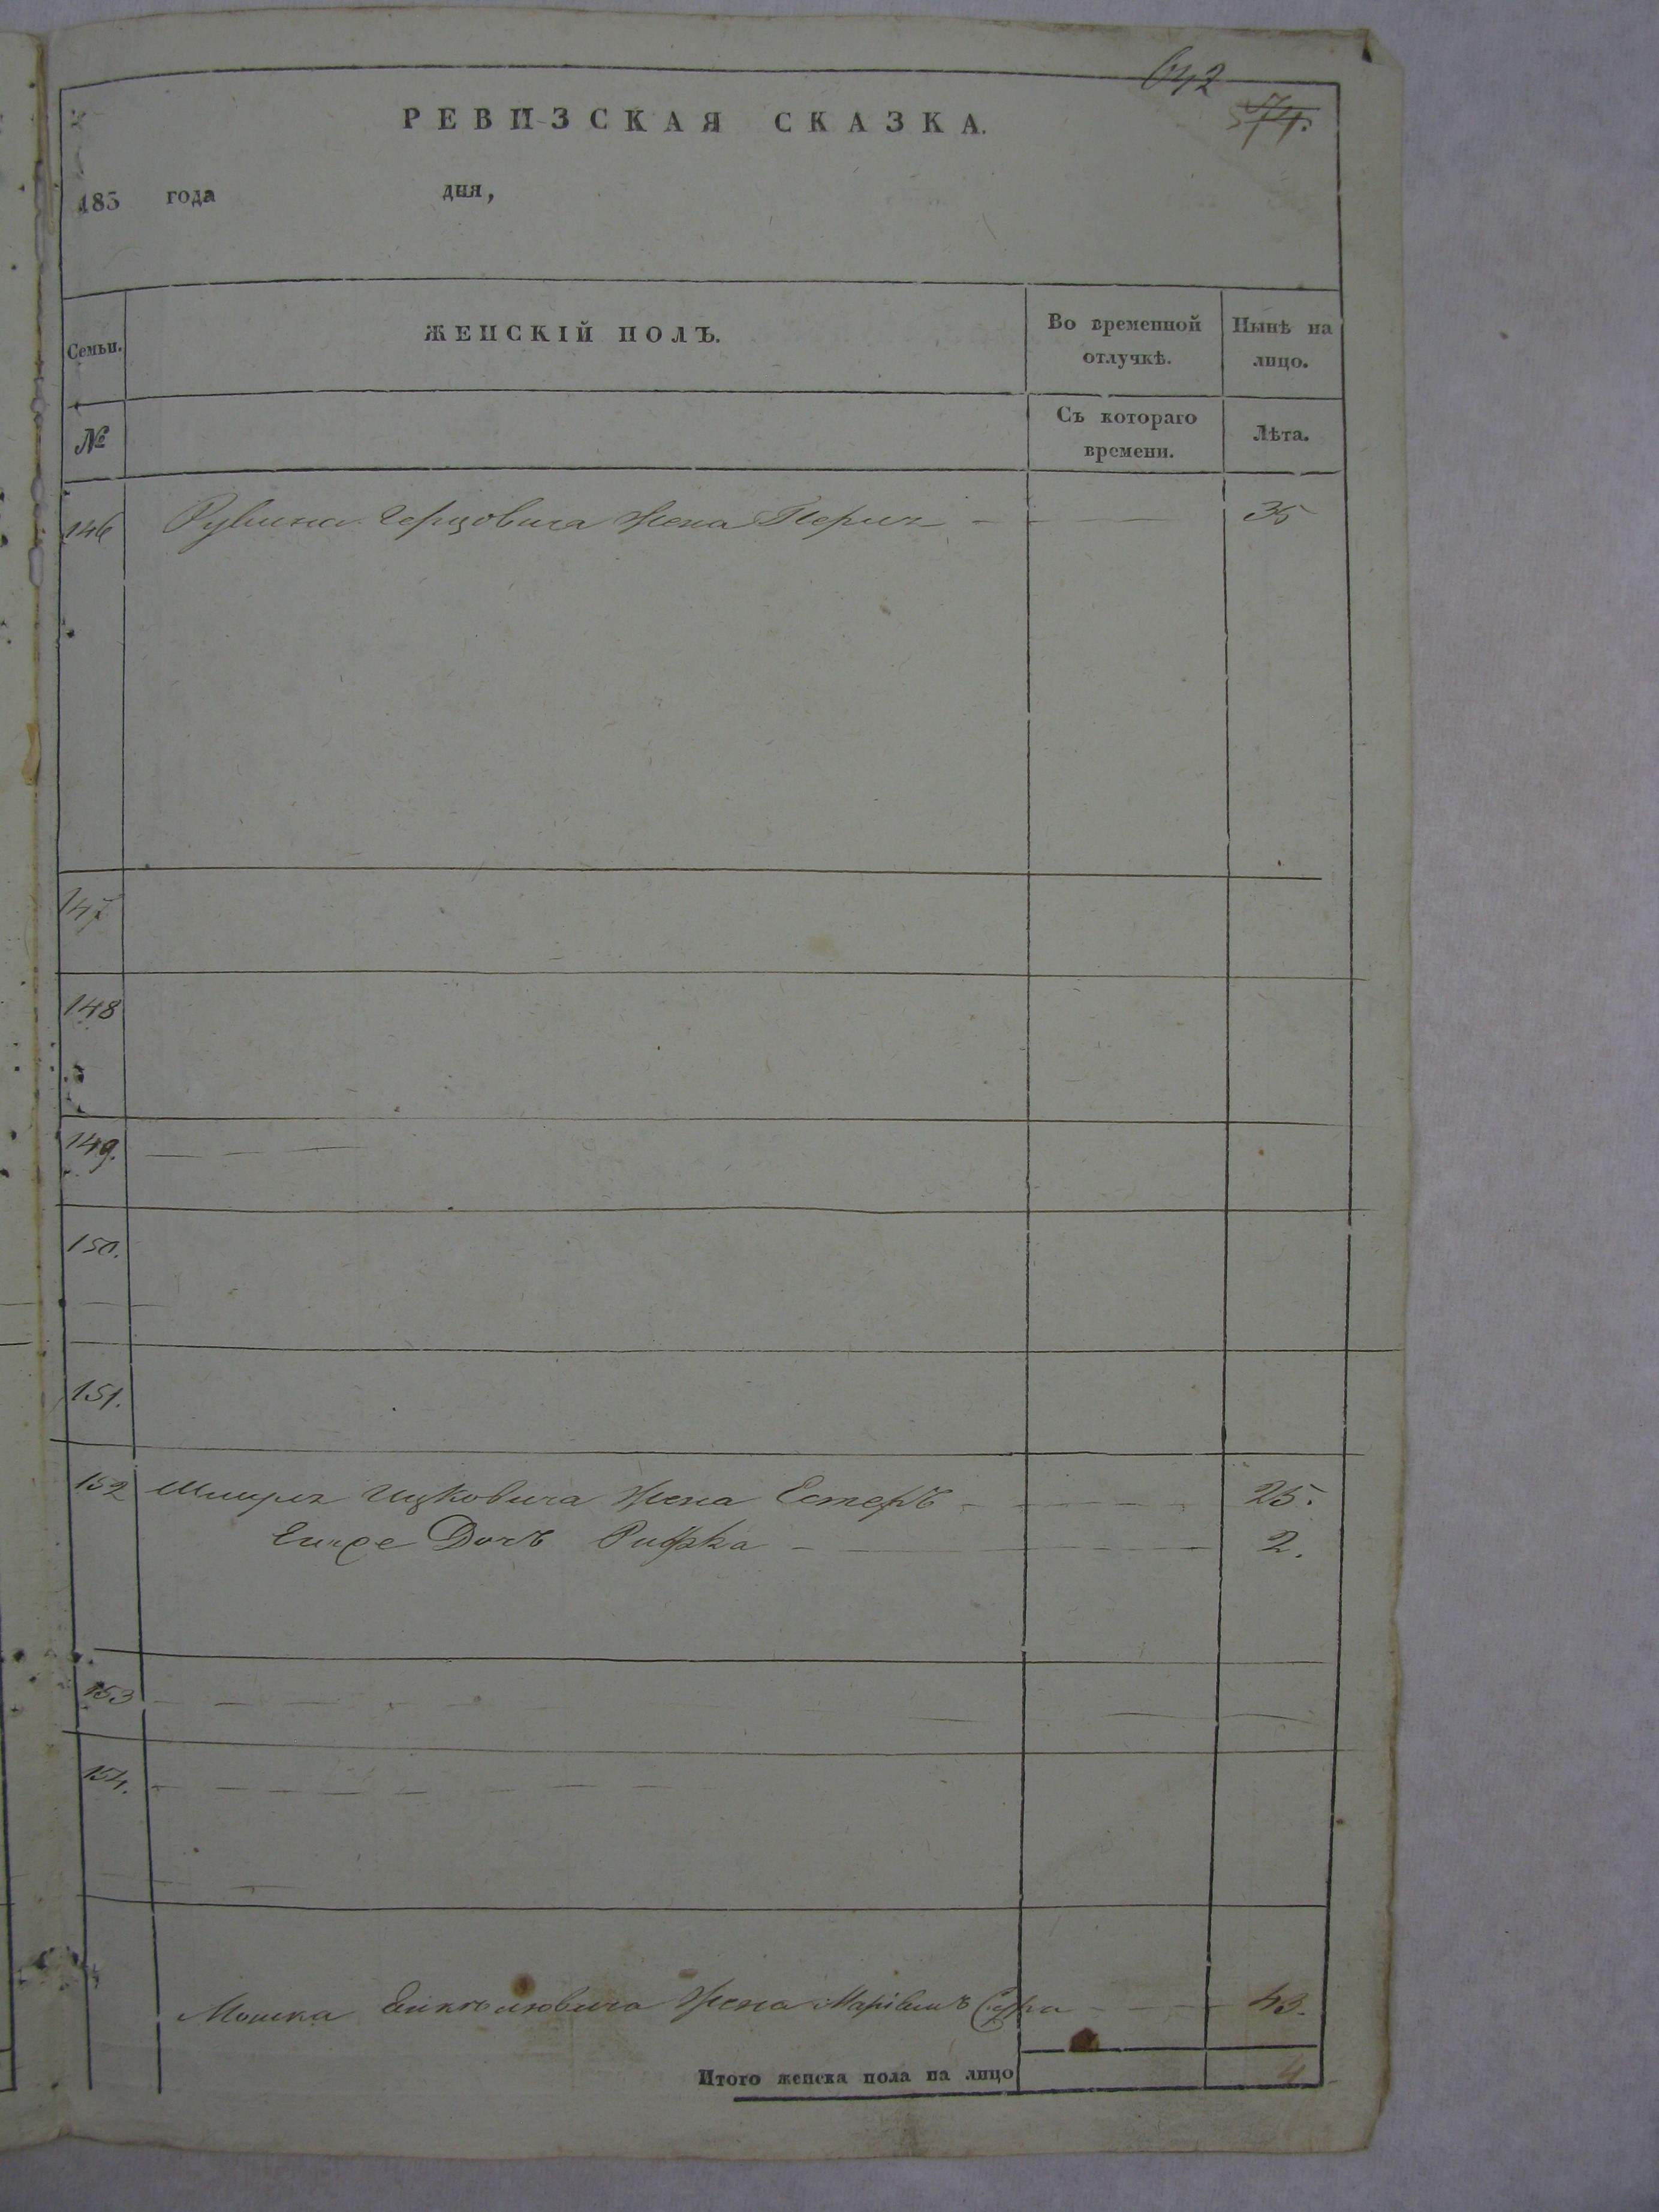 642
574.
РЕВИЗСКАЯ СКАЗКА.
185 года дня,
Семьи. ЖЕНСКІЙ ПОЛЪ. Во временной отлучкѣ. Нынѣ на лицо.
№ Съ котораго времени. Лѣта.
146 Рувина Герцовича жена Перля 35
147
148
149.
150.
151.
152 Ицковича жена Естеръ 25.
Дочь Рифка 2.
153
154.
Мошка жена Сура 43.
Итого женска пола на лицо 4